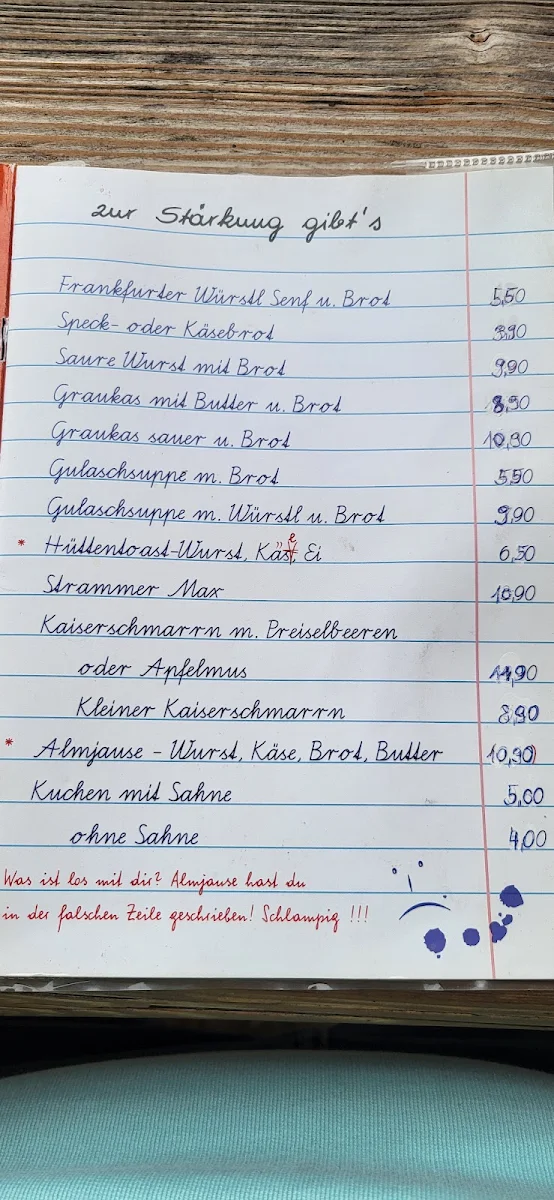 zur Stärkung gibt's
Frankfurter Würstl Senf u. Brot 5,50
Speck- oder Käsebrot 3,90
Saure Wurst mit Brot 9,90
Graukas mit Butter u. Brot 8,90
Graukas sauer u. Brot 10,90
Gulaschsuppe m. Brot 5,50
Gulaschsuppe m. Würstl u. Brot 9,90
* Hüttentoast-Wurst, Käse, Ei 6,50
Strammer Max 10,90
Kaiserschmarrn m. Preiselbeeren
oder Apfelmus 11,90
Kleiner Kaiserschmarrn 8,90
* Almjause - Wurst, Käse, Brot, Butter 10,90
Kuchen mit Sahne 5,00
ohne Sahne 4,00
Was ist los mit dir? Almjause hast du
in der falschen Zeile geschrieben! Schlampig !!!